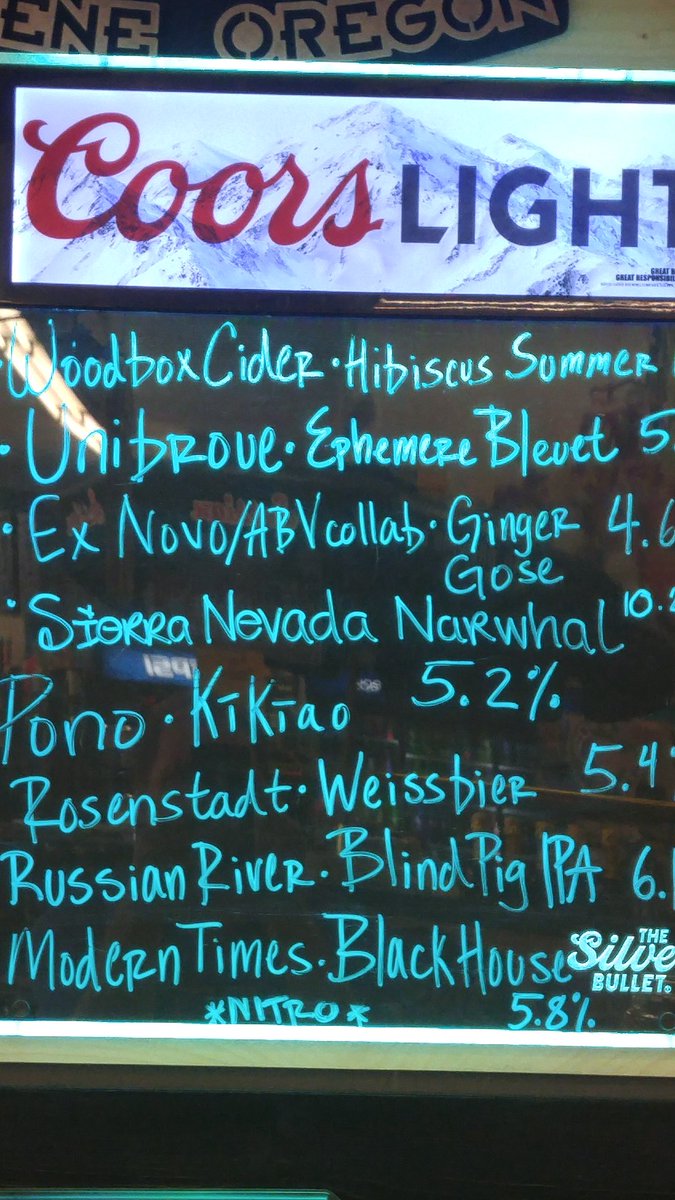 ENE OREGON
Coors LIGHT
GREAT
GREAT RESPONSIBIL
Woodbox Cider · Hibiscus Summer
· Unibroue · Ephemere Bleuet 5.
· Ex Novo/ABV collab · Ginger 4.6
Gose
· Sierra Nevada Narwhal 10.2
Pono · Kīkīao 5.2%
Rosenstadt · Weissbier 5.4%
Russian River · Blind Pig IPA 6.1
Modern Times · Black House
*NITRO* 5.8%
THE
Silve
BULLET